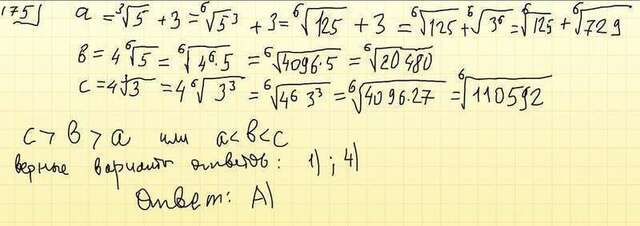 1751 a = ³√5 + 3 = ⁶√5³ + 3 = ⁶√125 + 3 = ⁶√125 + ⁶√3⁶ = ⁶√125 + ⁶√729
в = 4 ⁶√5 = ⁶√4⁶·5 = ⁶√4096·5 = ⁶√20480
c = 4√3 = 4 ⁶√3³ = ⁶√4⁶ 3³ = ⁶√4096·27 = ⁶√110592
c > в > a или a < в < c
верные варианты ответов: 1) ; 4)
Ответ: А)